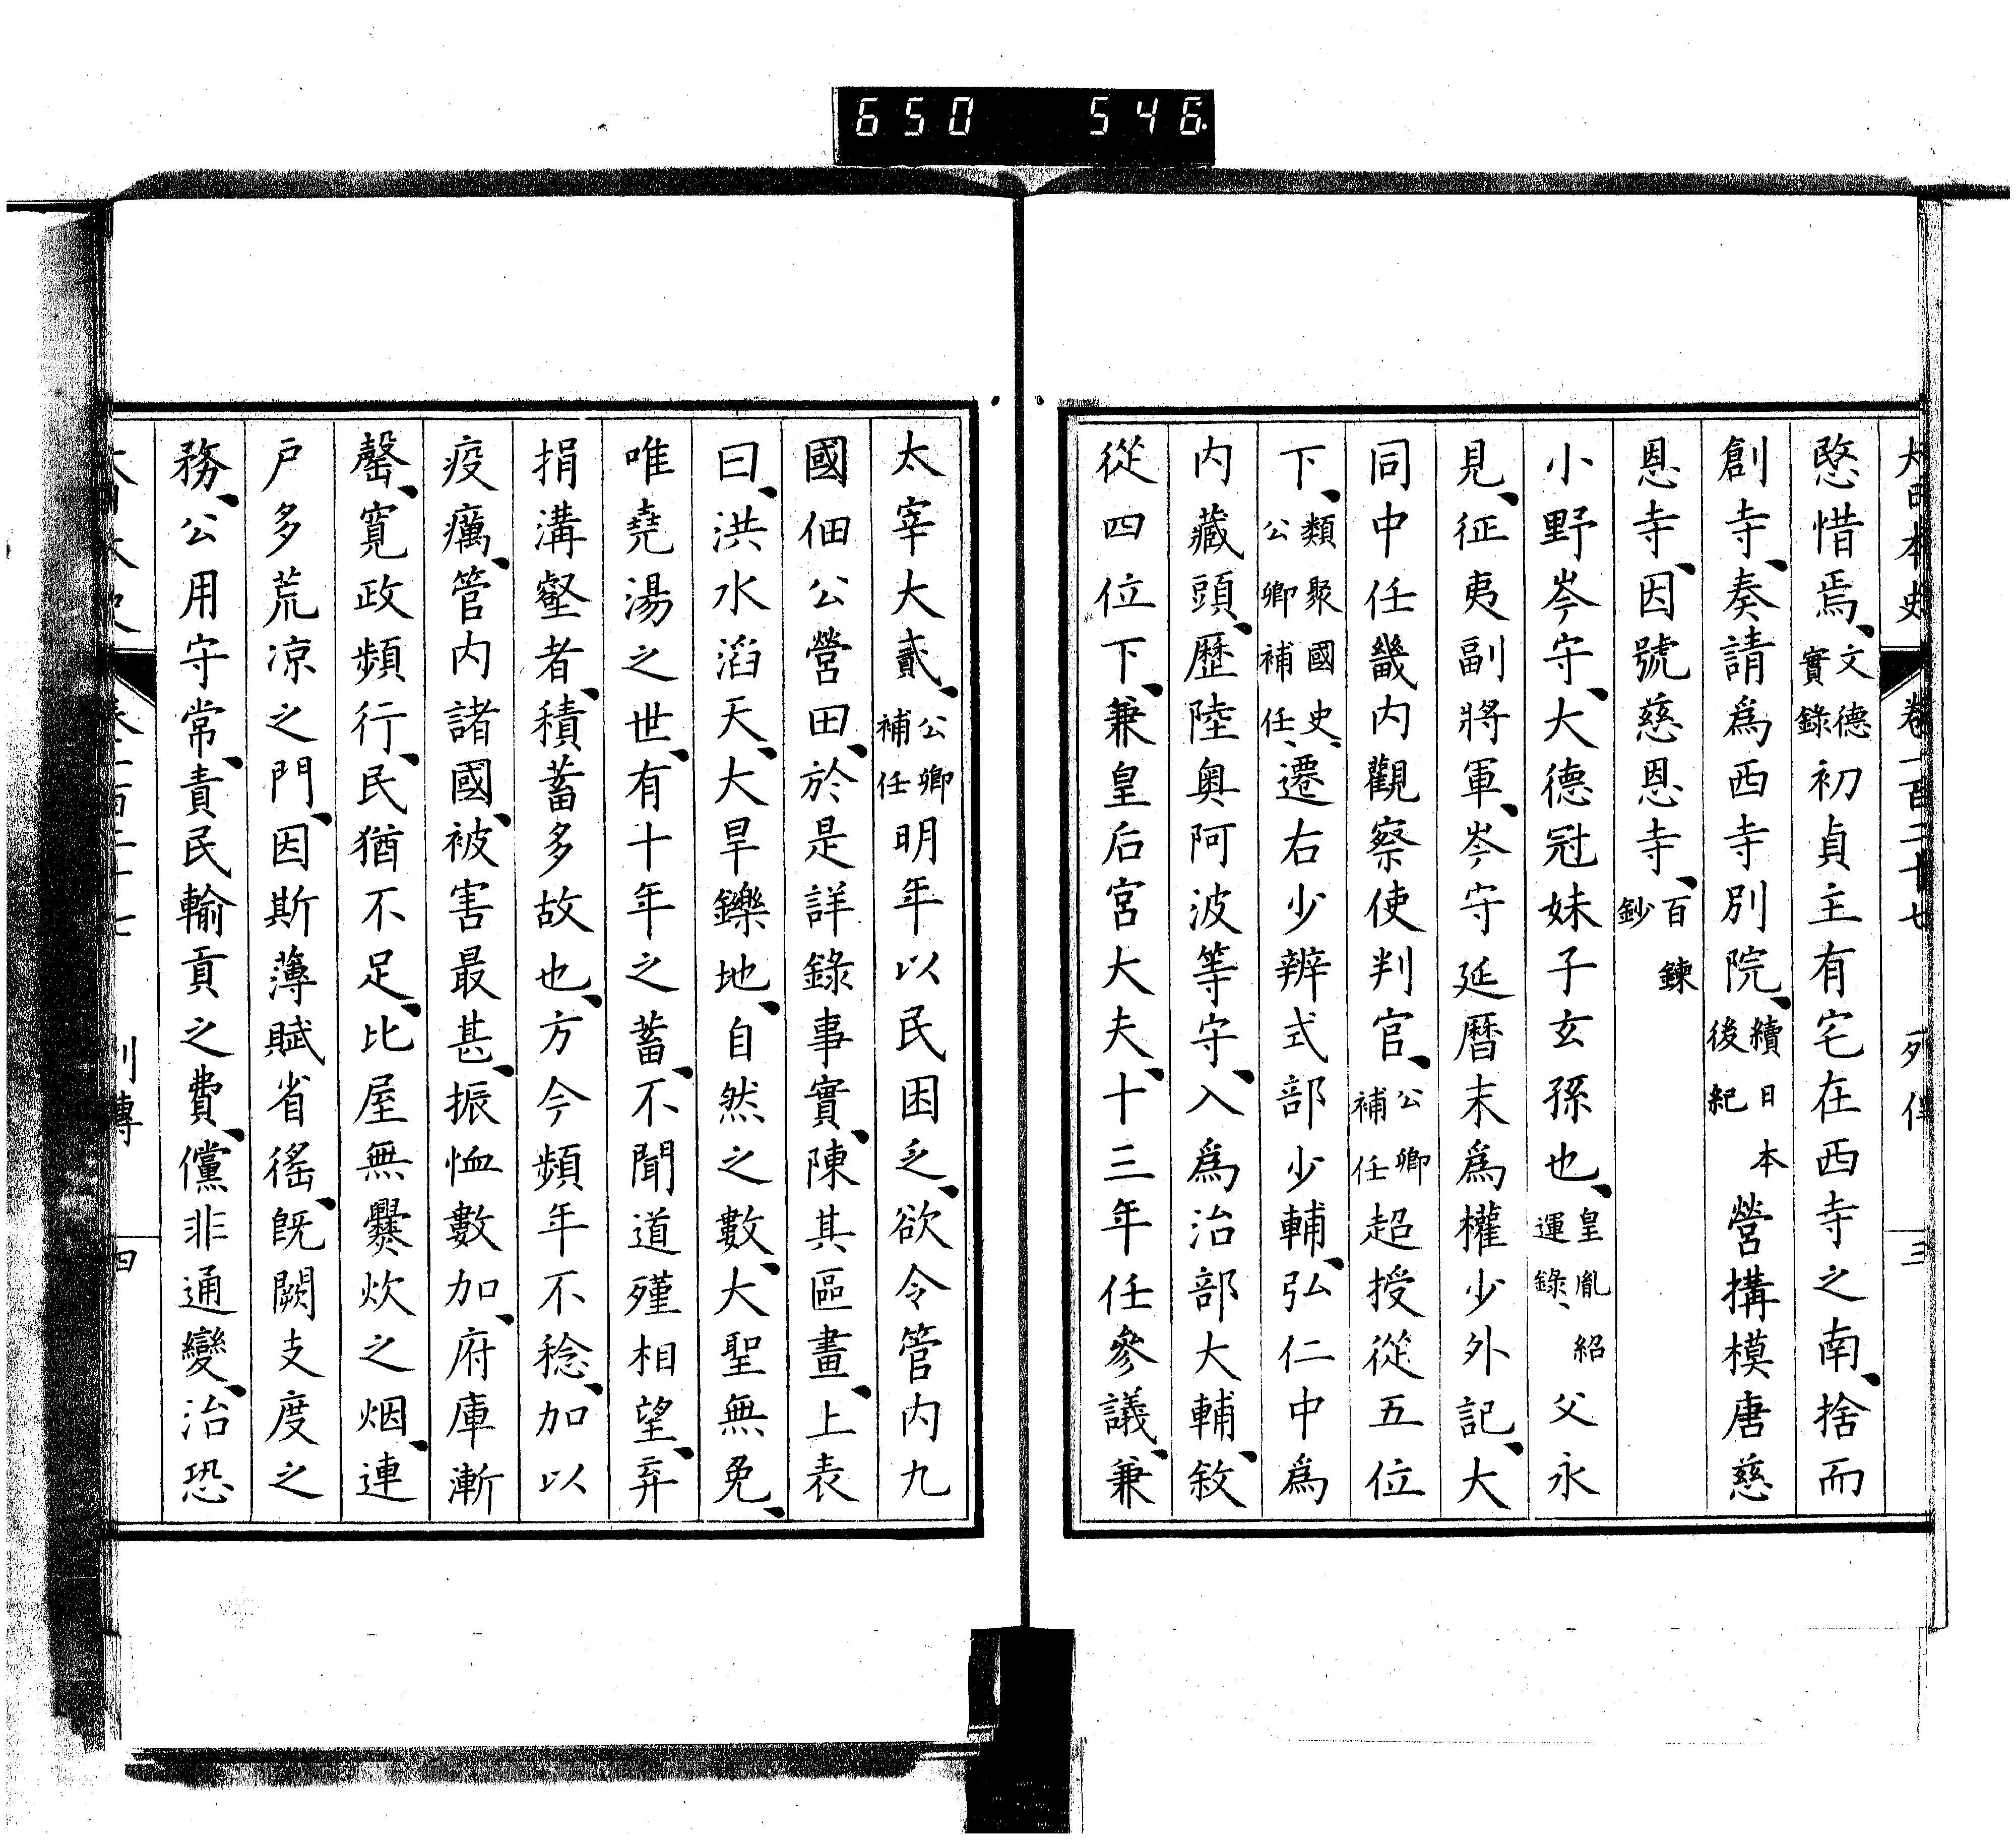 650 546
大日本史 卷一百二十七 列傳 三
愍惜焉、文德實錄初貞主有宅在西寺之南、捨而
創寺、奏請爲西寺別院、續日本後紀營搆模唐慈
恩寺、因號慈恩寺、百鍊鈔
小野岑守、大德冠妹子玄孫也、皇胤紹運錄、父永
見、征夷副將軍、岑守延曆末爲權少外記、大
同中任畿內觀察使判官、公卿補任超授從五位
下、類聚國史、公卿補任、遷右少辨式部少輔、弘仁中爲
内藏頭、歷陸奥阿波等守、入爲治部大輔、敘
從四位下、兼皇后宮大夫、十三年任參議、兼
太宰大貳、公卿補任明年以民困乏、欲令管内九
國佃公營田、於是詳錄事實、陳其區畫、上表
曰、洪水滔天、大旱鑠地、自然之數、大聖無免、
唯堯湯之世、有十年之蓄、不聞道殣相望、弃
捐溝壑者、積蓄多故也、方今頻年不稔、加以
疫癘、管内諸國、被害最甚、振恤數加、府庫漸
罄、寛政頻行、民猶不足、比屋無爨炊之烟、連
戸多荒凉之門、因斯薄賦省徭、旣闕支度之
務、公用守常、責民輸貢之費、儻非通變、治恐
列傳 四